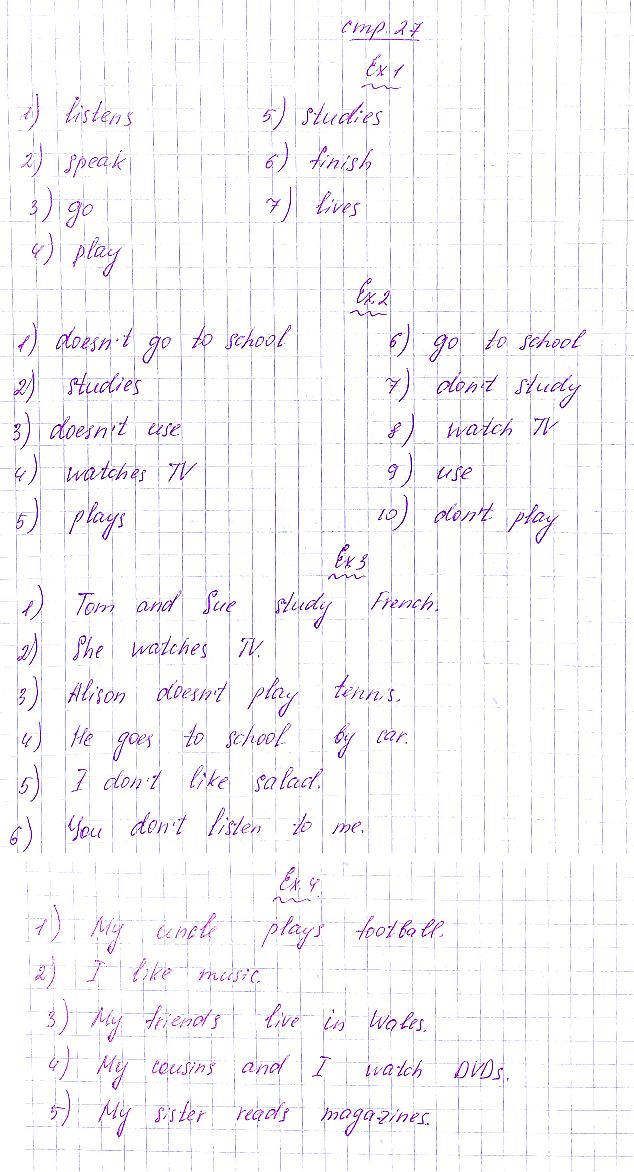 стр. 27
Ex 1
1) listens 5) studies
2) speak 6) finish
3) go 7) lives
4) play
Ex. 2
1) doesn't go to school 6) go to school
2) studies 7) don't study
3) doesn't use 8) watch TV
4) watches TV 9) use
5) plays 10) don't play
Ex 3
1) Tom and Sue study French.
2) She watches TV.
3) Alison doesn't play tennis.
4) He goes to school by car.
5) I don't like salad.
6) You don't listen to me.
Ex. 4
1) My uncle plays football.
2) I like music.
3) My friends live in Wales.
4) My cousins and I watch DVDs.
5) My sister reads magazines.